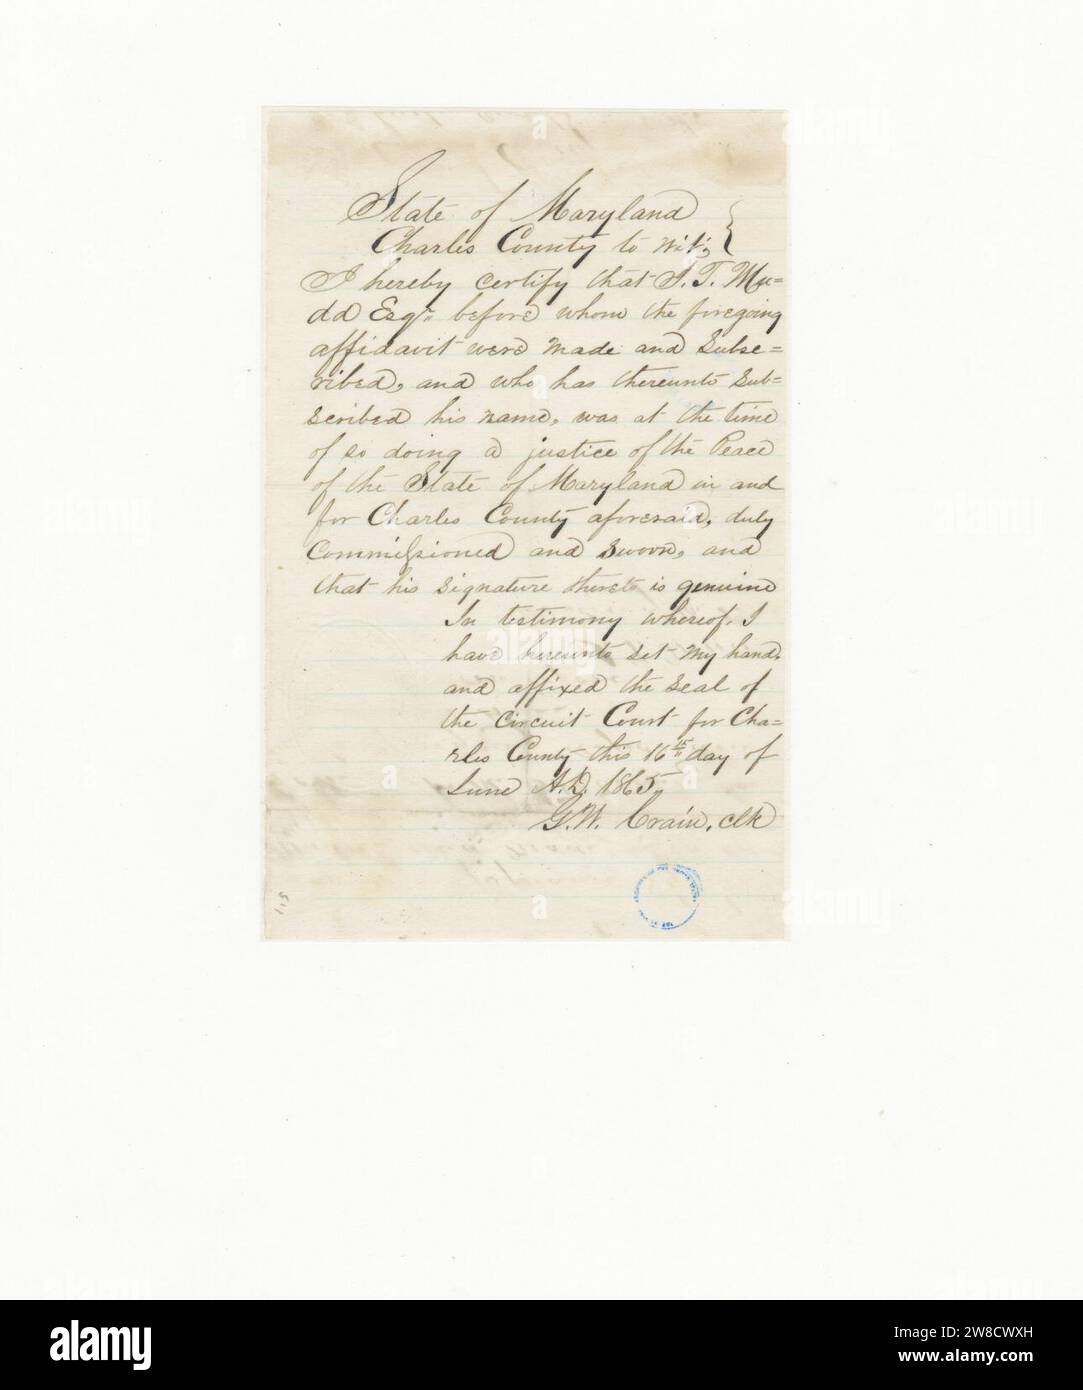 State of Maryland
Charles County to wit; }
I hereby certify that J. T. Mu=
dd Esqr. before whom the foregoing
affidavit were made and Subsc=
ribed, and who has thereunto Sub=
scribed his name, was at the time
of so doing a justice of the Peace
of the State of Maryland in and
for Charles County aforesaid, duly
Commissioned and sworn, and
that his signature thereto is genuine
In testimony whereof, I
have hereunto set my hand,
and affixed the seal of
the Circuit Court for Cha=
rles County this 16th day of
June A.D. 1865,
G. W. Crain, clk
115
alamy
Image ID: 2W8CWXH
www.alamy.com